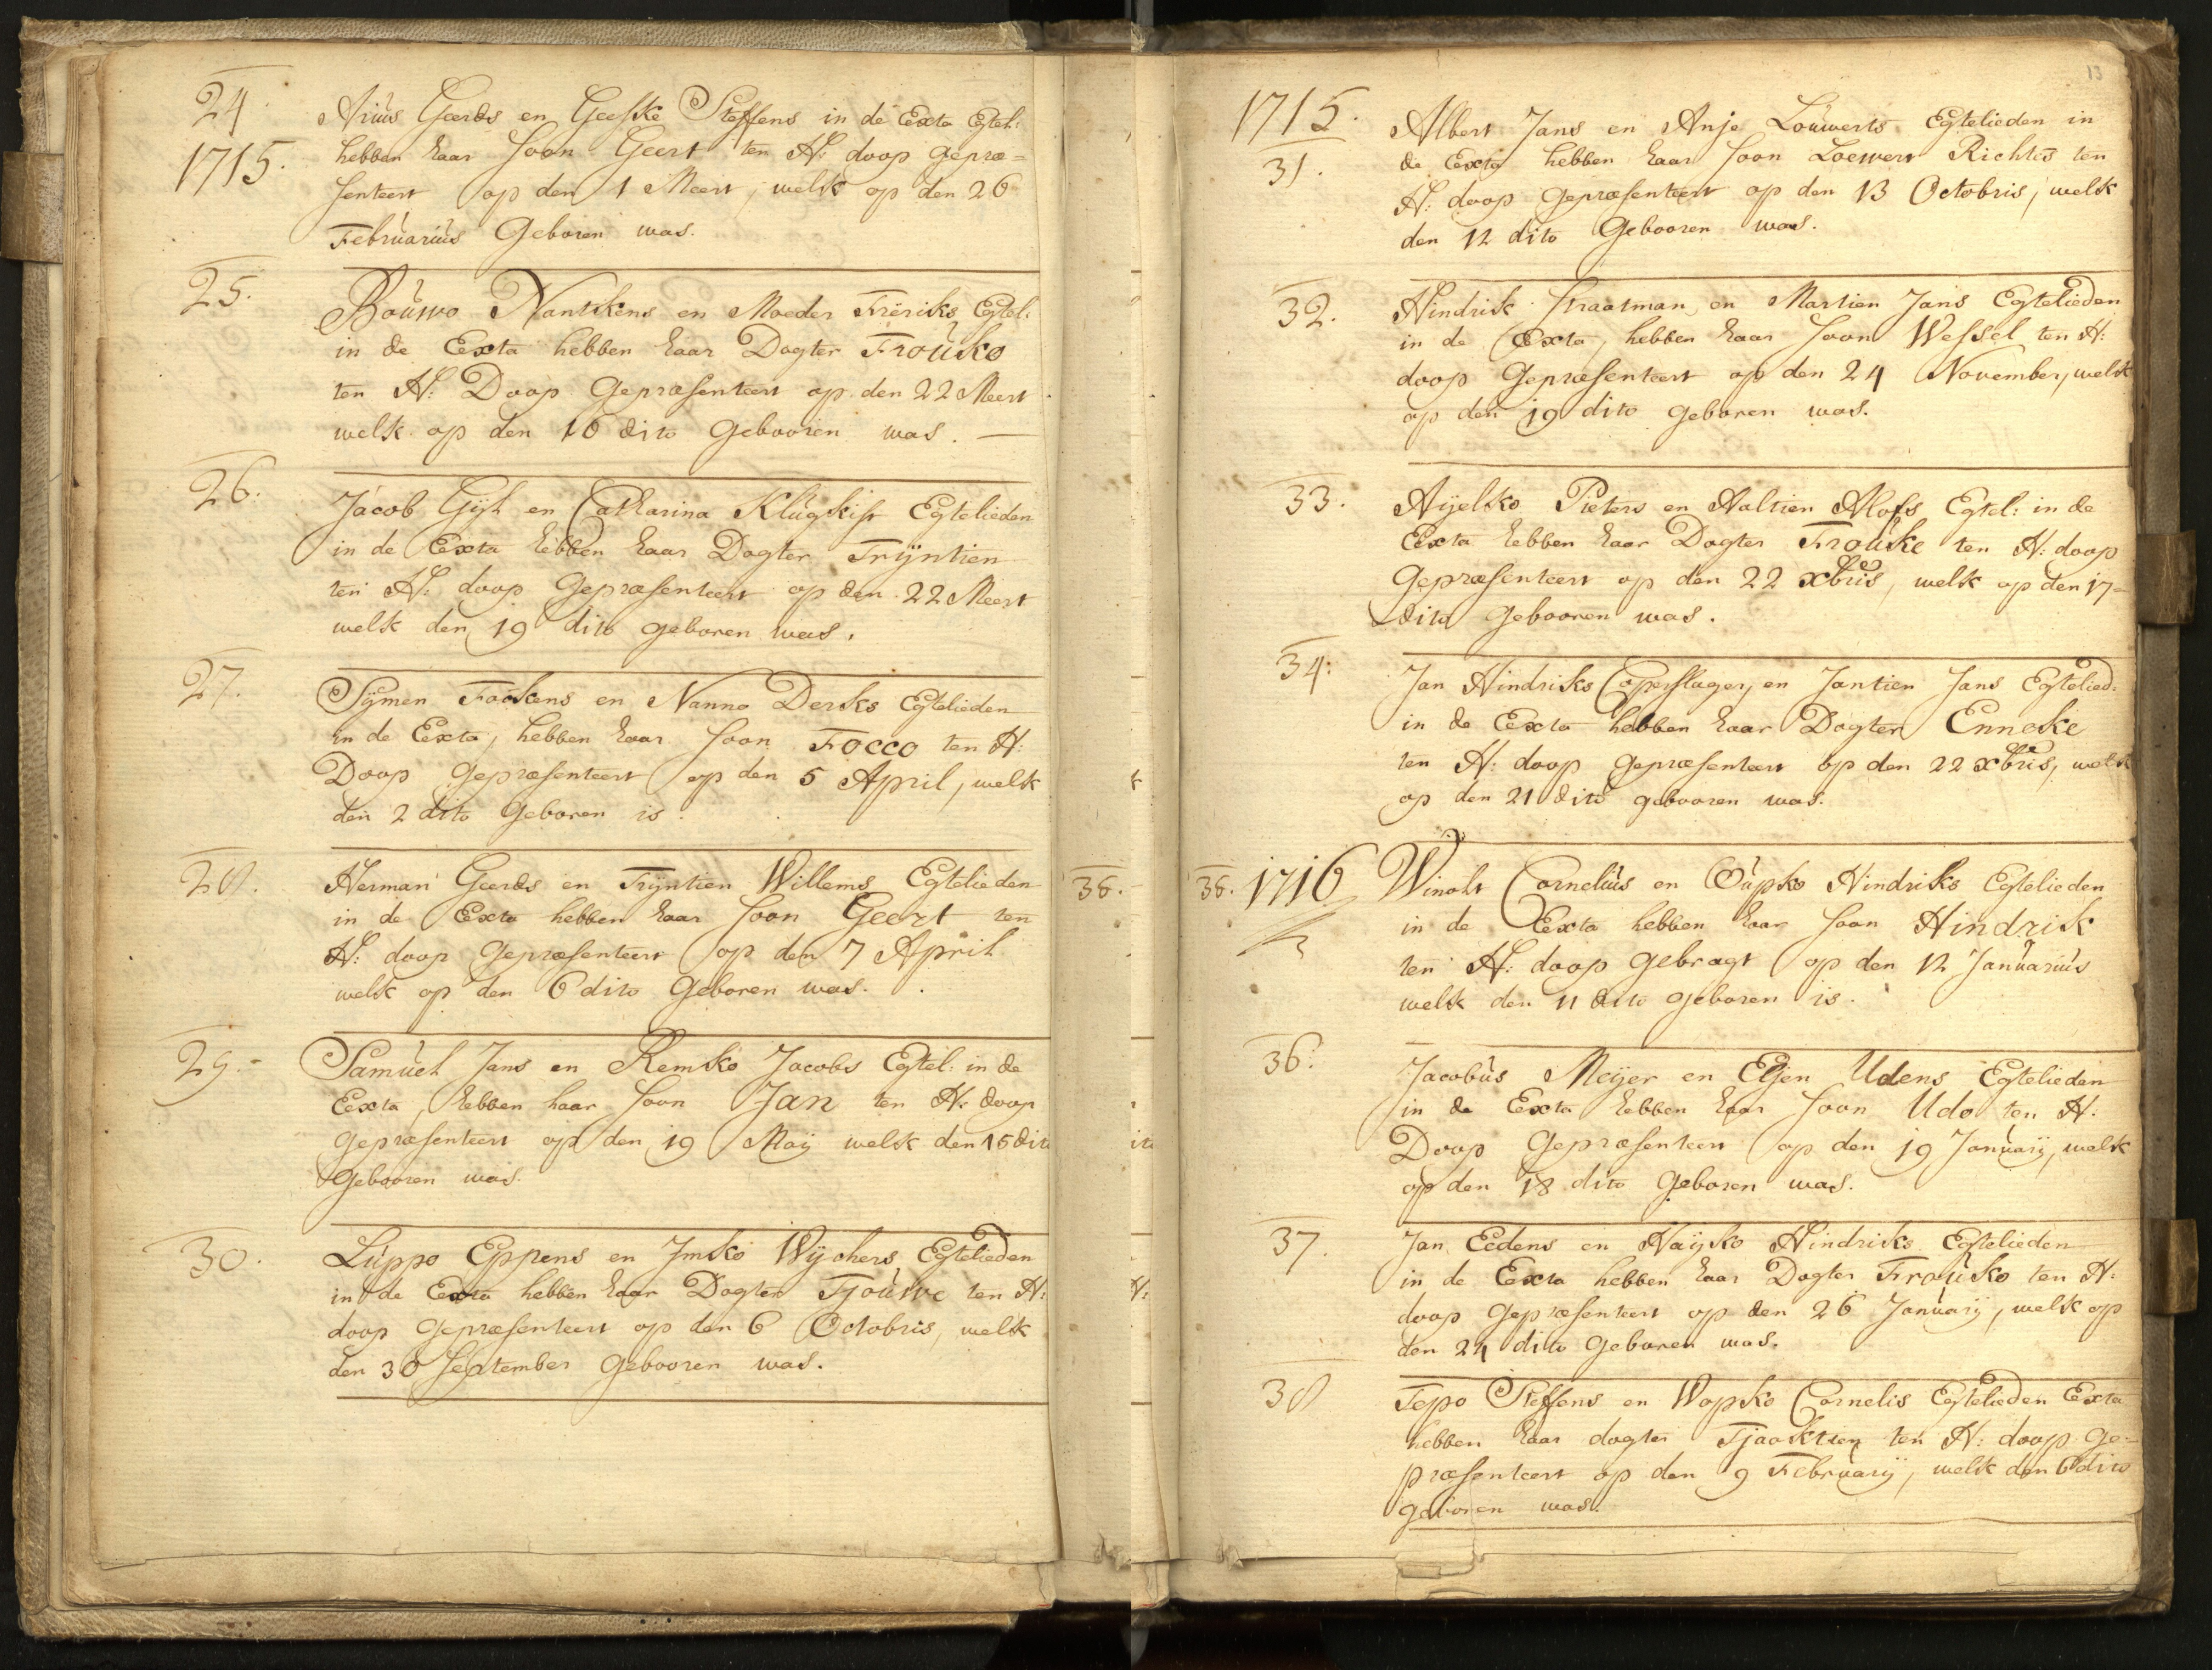 24
1715.
Arius Geerds en Geeske Steffens in de Eexta Egtel:
hebben haar Soon Geert ten H: doop gepræ=
senteert op den 1 Meert, welk op den 26
Februarius Geboren was.
25.
Bouwo Nantkens en Moeder Frëriks Egtel:
in de Eexta hebben haar Dogter Frouko
ten H: Doop Gepræsenteert op den 22 Meert
welk op den 16 dito Gebooren was.
26.
Jacob Gijl en Catharina Klugkist Egtelieden
in de Eexta hebben haar Dogter Trijntien
ten H: doop Gepræsenteert op den 22 Meert
welk den 19 dito geboren was.
27.
Sijmen Fookens en Nanno Derks Egtelieden
in de Eexta, hebben haar Soon Focco ten H:
Doop gepræsenteert op den 5 April, welk
den 2 dito Geboren is.
28.
Herman Geerds en Trijntien Willems Egtelieden
in de Eexta hebben haar Soon Geert ten
H: doop Gepræsenteert op den 7 April
welk op den 6 dito Geboren was.
29.
Samuel Jans en Remko Jacobs Egtel: in de
Eexta, hebben haar Soon Jan ten H: doop
gepræsenteert op den 19 Maij welk den 15 dito
Gebooren was.
30.
Luppo Eppens en Imko Wijchers Egtelieden
in de Eexta hebben haar Dogter Tjouwe ten H:
doop Gepræsenteert op den 6 Octobris, welk
den 30 September Gebooren was.
13
1715.
31.
Albert Jans en Anje Louwerts Egtelieden in
de Eexta hebben haar Soon Loewert Richts ten
H: doop gepræsenteert op den 13 Octobris, welk
den 12 dito Gebooren was.
32.
Hindrik Straatman en Martien Jans Egtelieden
in de Eexta, hebben haar Soon Wessel ten H:
doop Gepræsenteert op den 24 November, welk
op den 19 dito geboren was.
33.
Aijelko Pieters en Aaltien Alofs Egtel: in de
Eexta hebben haar Dogter Frouke ten H: doop
Gepræsenteert op den 22 xbris, welk op den 17
dito gebooren was.
34.
Jan Hindriks Coperslager, en Jantien Jans Egtelied:
in de Eexta hebben haar Dogter Enneke
ten H: doop gepræsenteert op den 22 xbris, welk
op den 21 dito gebooren was.
35. 1716
Winolt Cornelius en Oupko Hindriks Egtelieden
in de Eexta hebben haar Soon Hindrik
ten H: doop Gebragt op den 12 Januarius
welk den 11 dito geboren is.
36.
Jacobus Meijer en Eltjen Udens Egtelieden
in de Eexta hebben haar Soon Udo ten H:
Doop Gepræsenteert op den 19 Januarij, welk
op den 18 dito Geboren was.
37.
Jan Eedens en Haijko Hindriks Egtelieden
in de Eexta hebben haar Dogter Frouko ten H:
doop Gepræsenteert op den 26 Januarij, welk op
den 24 dito Geboren was.
38
Tepo Steffens en Wopko Cornelis Egtelieden Eexta
hebben haar dogter Tjaaktien ten H: doop ge=
præsenteert op den 9 Februarij, welk den 6 dito
geboren was.